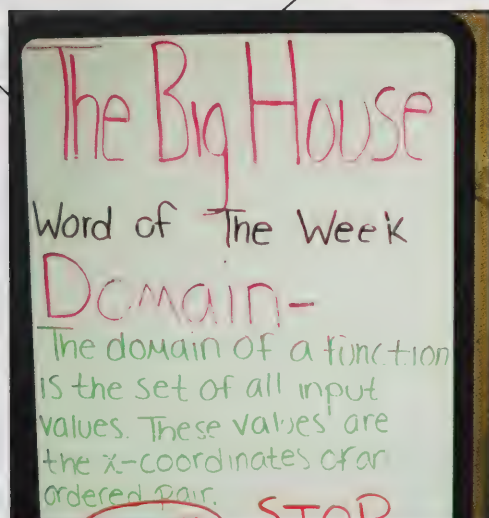 The Big House
Word of The Week
Domain-
The domain of a function
is the set of all input
values. These values are
the x-coordinates of an
ordered pair.
STOP